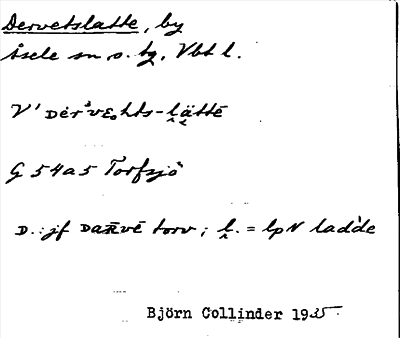 Dervetslatte, by
Åsele sn o. tg, Vbt l.
V' Der've̥hts-lätte
G 54a5 Torfsjö
D. : jf Darve torv ; l. = lpN ladde
Björn Collinder 1935.